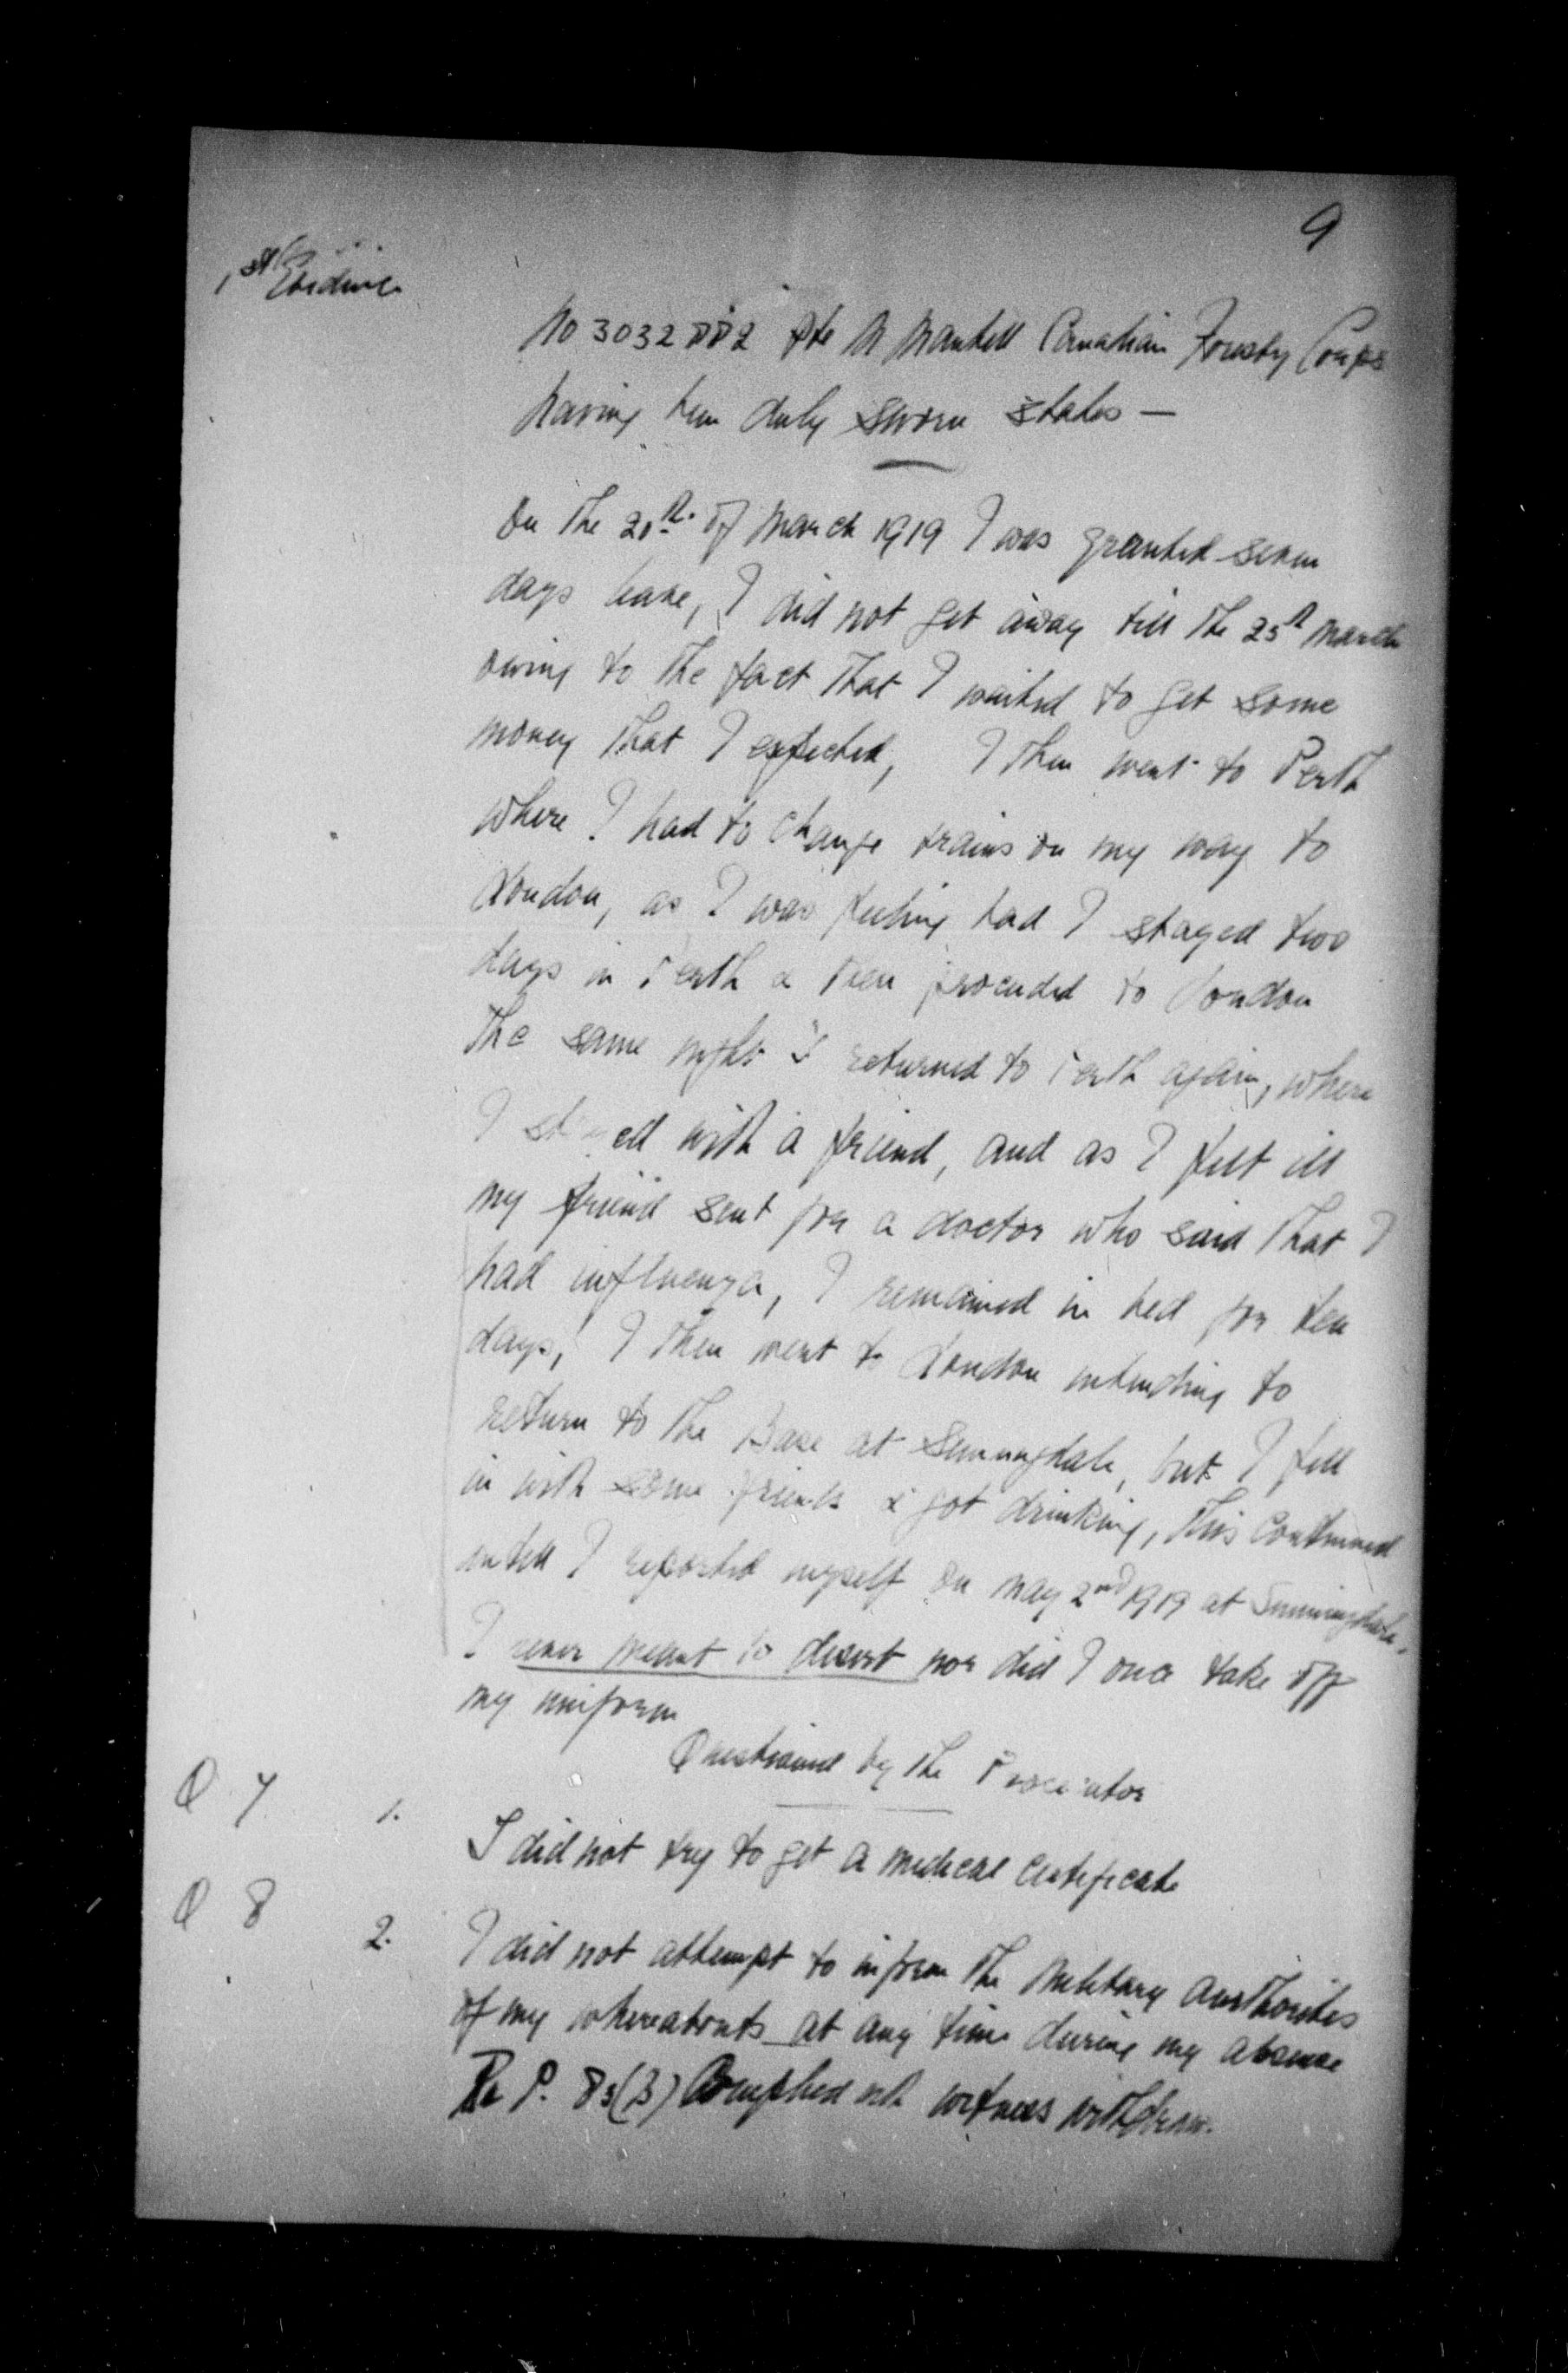 9
1st Evidence
No 3032882 Pte M Mantell Canadian Forestry Corps
having been duly sworn states —
On the 20th. of March 1919 I was granted seven
days leave, I did not get away till the 25th March
owing to the fact that I waited to get some
money that I expected, I then went to Perth
where I had to change trains on my way to
London, as I was feeling bad I stayed two
days in Perth & then proceeded to London
The same night I returned to Perth again, where
I stayed with a friend, and as I felt ill
my friend sent for a doctor who said that I
had influenza, I remained in bed for ten
days, I then went to London intending to
return to the Base at Sunningdale, but I fell
in with some friends & got drinking, this continued
untill I reported myself on May 2nd 1919 at Sunningdale.
I never meant to desert nor did I once take off
my uniform
Questioned by the Prosecutor
Q 7 1. I did not try to get a medical certificate
Q 8 2. I did not attempt to inform the Military Authorities
of my whereabouts at any time during my absence
R. P. 83(B) Complied with witness withdraw.